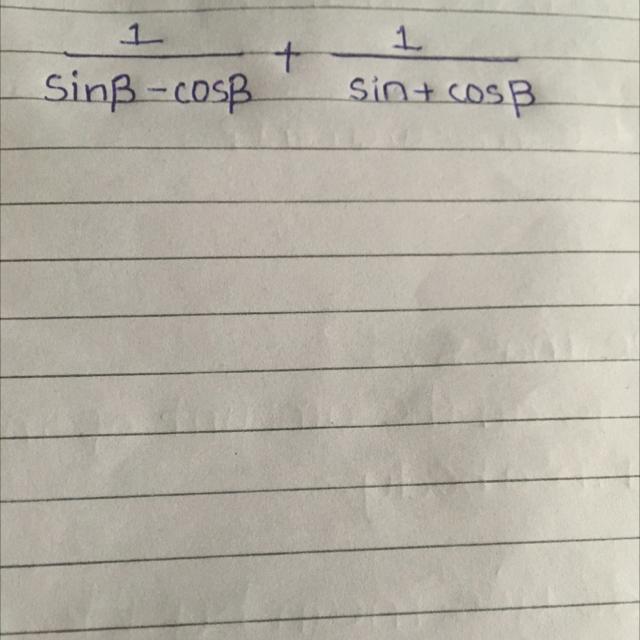 1/(sinβ-cosβ) + 1/(sin+cosβ)